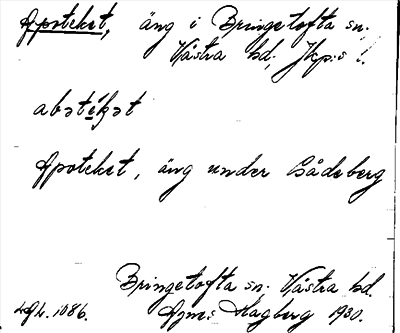 Apoteket, äng i Bringetofta sn.
Västra hd, Jkp:s l.
abətékət
Apoteket, äng under Bådeberg
Bringetofta sn. Västra hd.
Agnes Hagberg 1930.